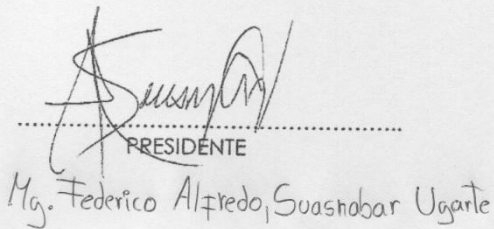 PRESIDENTE
Mg. Federico Alfredo, Suasnabar Ugarte